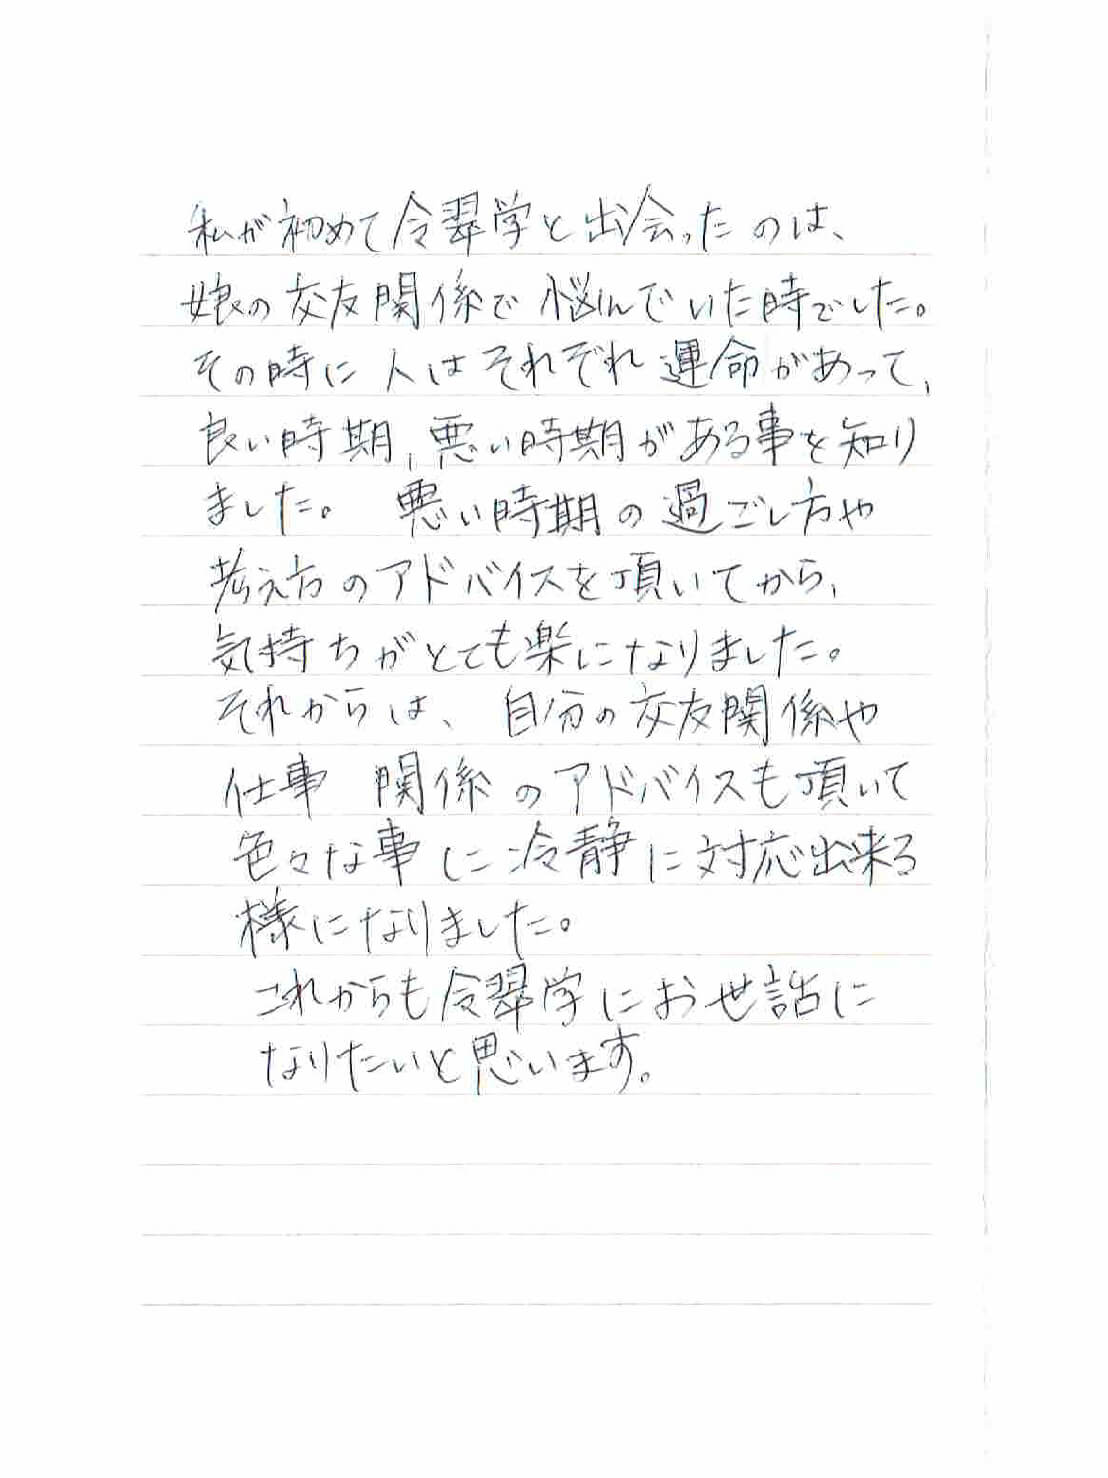 私が初めて令翠学と出会ったのは、
娘の交友関係で悩んでいた時でした。
その時に人はそれぞれ運命があって、
良い時期、悪い時期がある事を知り
ました。 悪い時期の過ごし方や
考え方のアドバイスを頂いてから、
気持ちがとても楽になりました。
それからは、 自分の交友関係や
仕事 関係のアドバイスも頂いて
色々な事に冷静に対応出来る
様になりました。
これからも令翠学にお世話に
なりたいと思います。